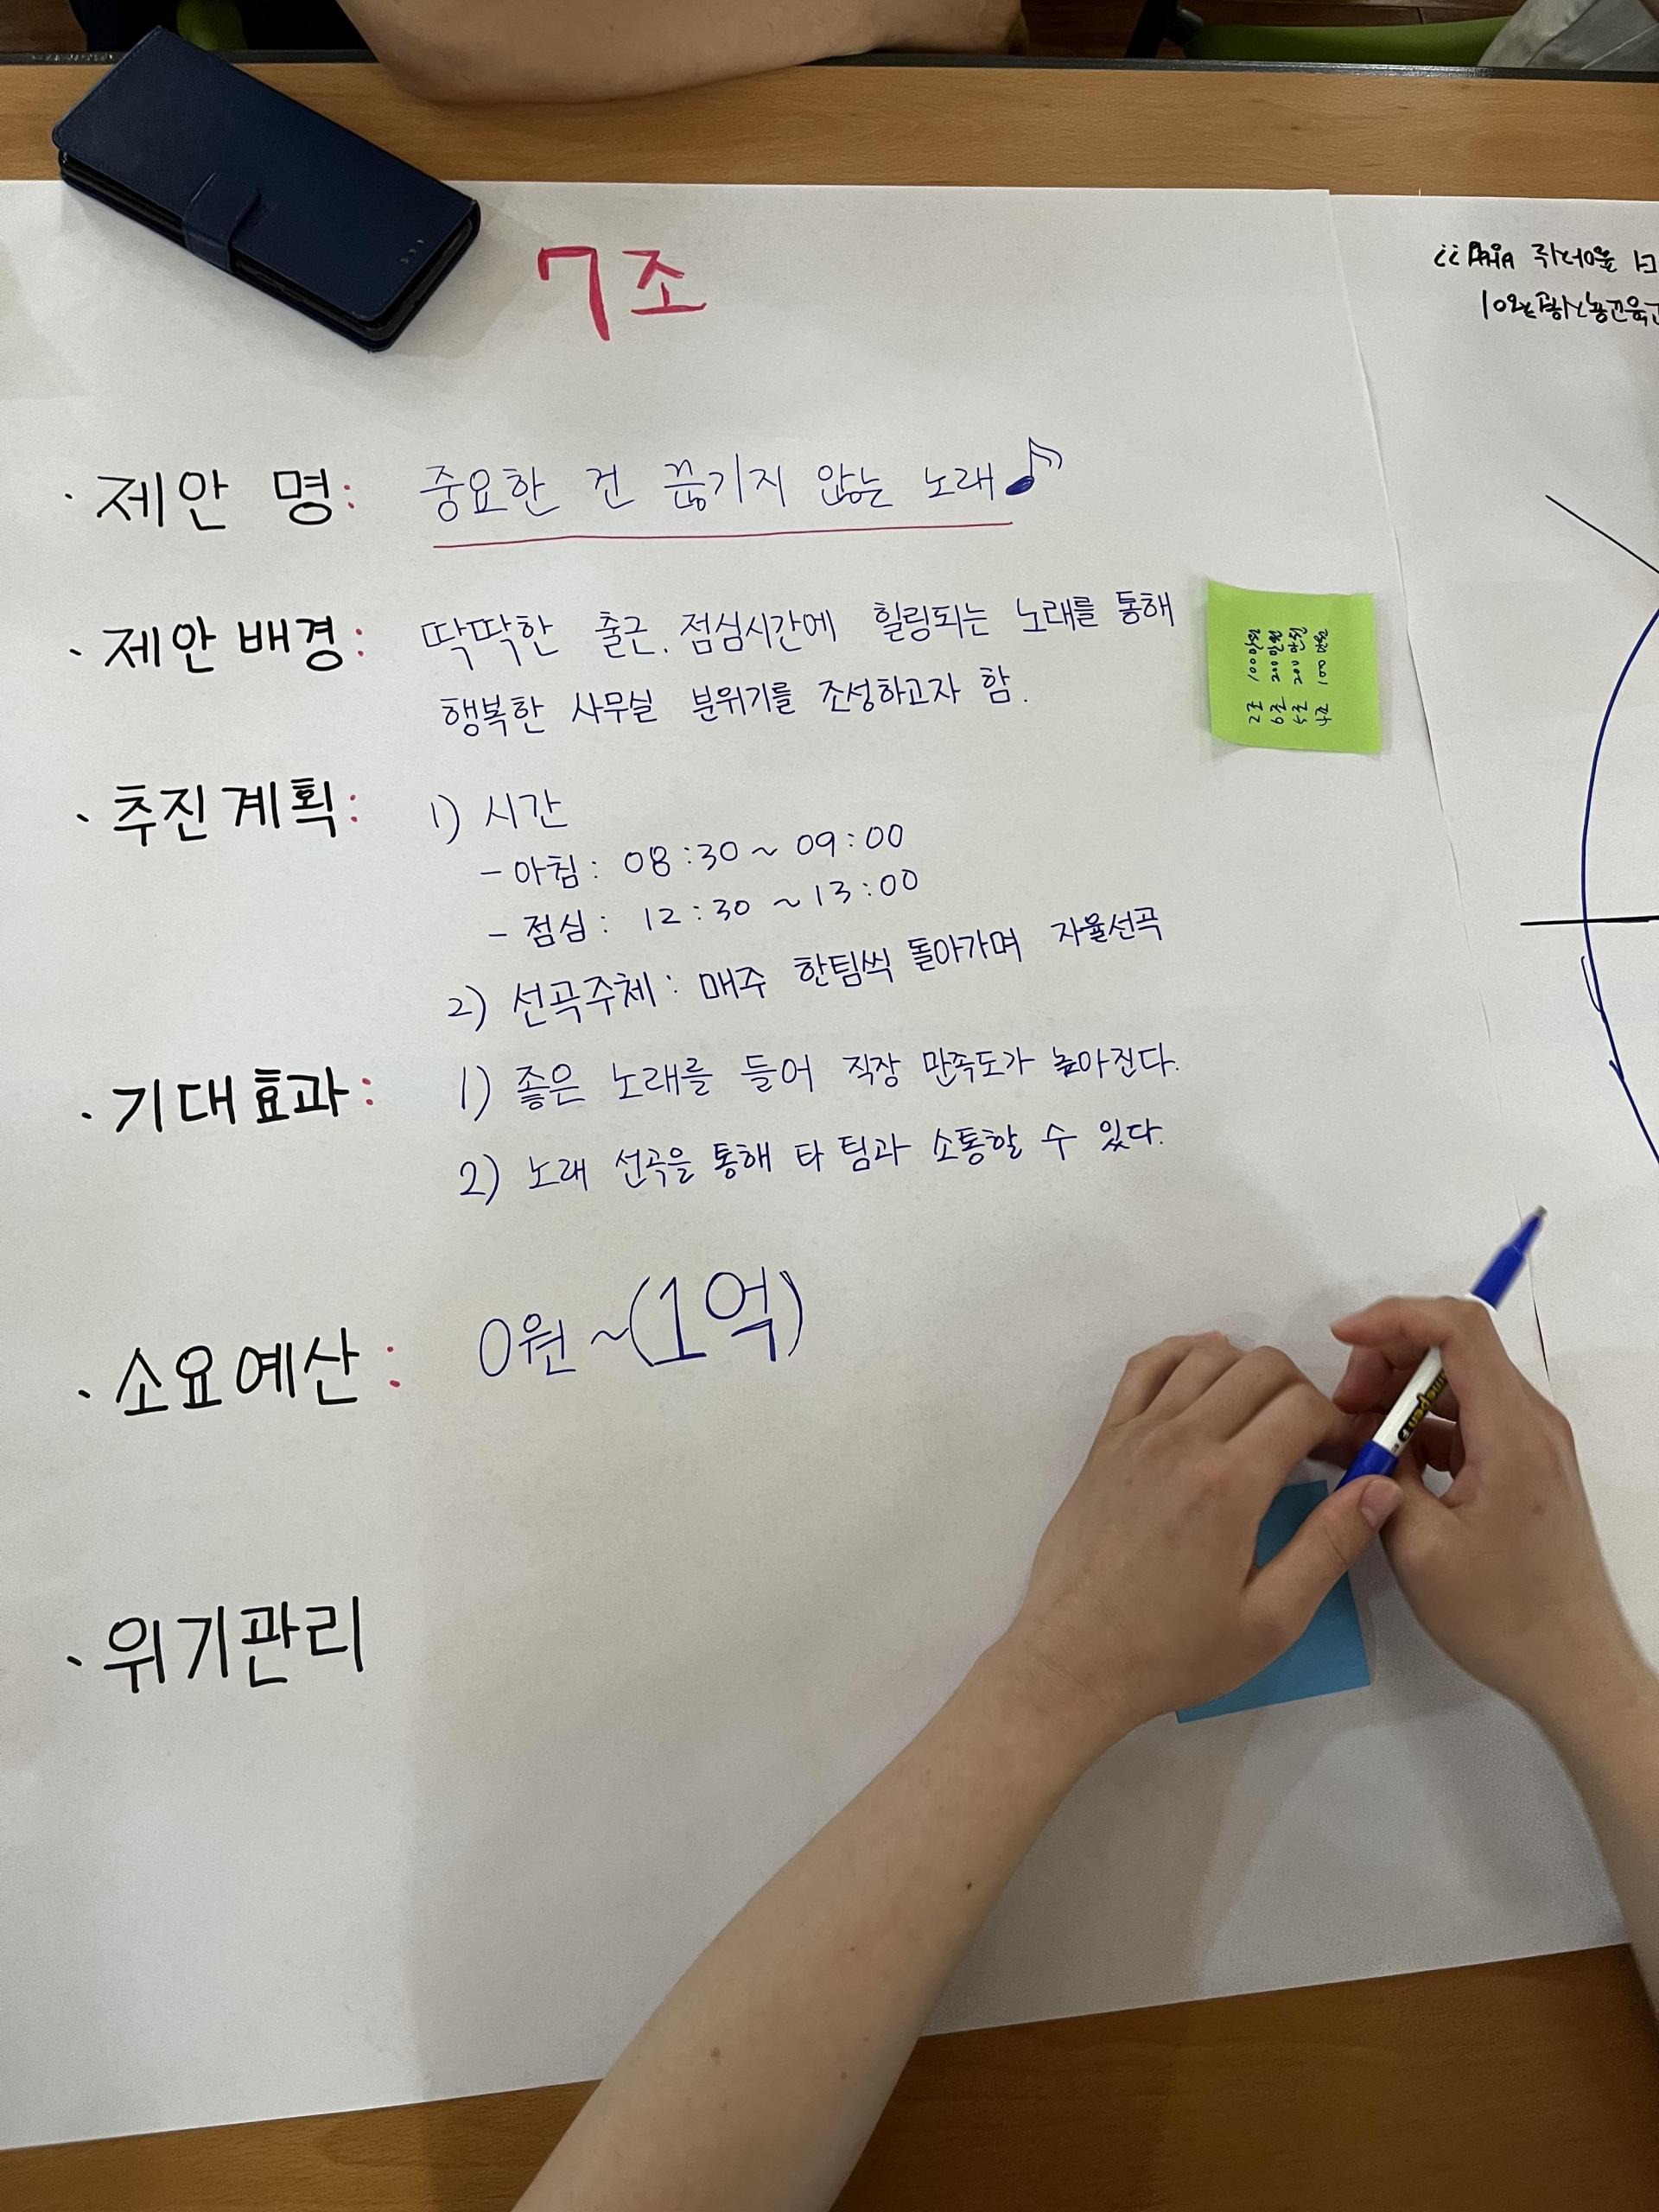 7조
· 제안 명: 중요한 건 끊기지 않는 노래♪
· 제안 배경: 딱딱한 출근, 점심시간에 힐링되는 노래를 통해
행복한 사무실 분위기를 조성하고자 함.
· 추진계획: 1) 시간
- 아침: 08:30 ~ 09:00
- 점심: 12:30 ~ 13:00
2) 선곡주체: 매주 한팀씩 돌아가며 자율선곡
· 기대효과: 1) 좋은 노래를 들어 직장 만족도가 높아진다.
2) 노래 선곡을 통해 타 팀과 소통할 수 있다.
· 소요예산: 0원 ~ (1억)
· 위기관리
2조 100만원
6조 200만원
5조 200만원
4조 100만원